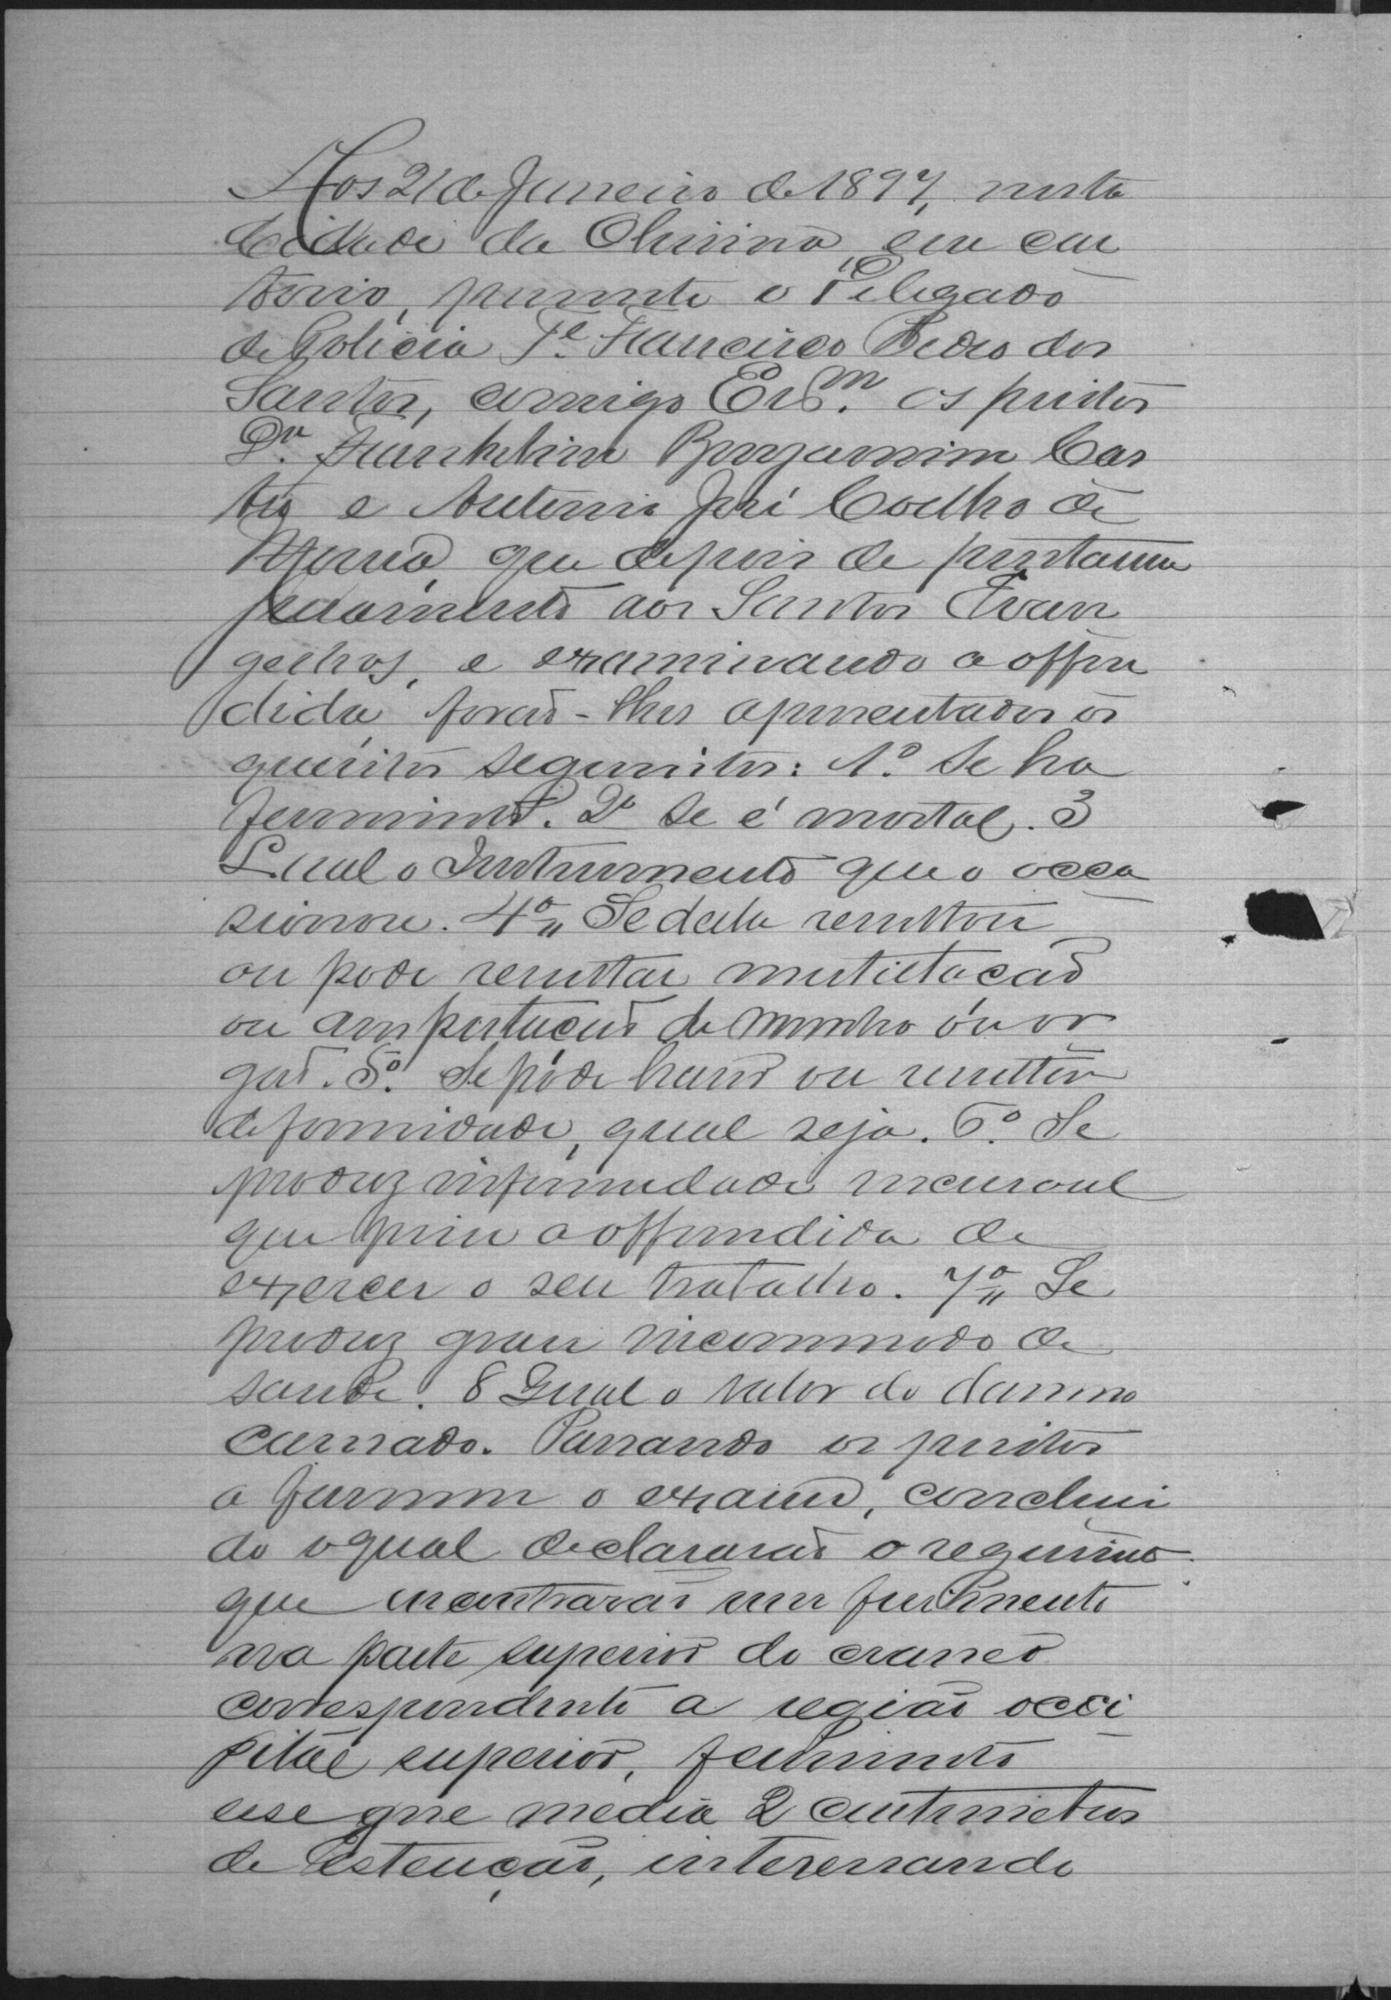 Aos 21 de Janeiro de 1897, nesta
Cidade da Christina, em car
torio, perante o Delegado
de Policia Te. Francisco Pedro dos
Santos, comigo Escm. os peritos
Dr. Franklim Benjamim Cas
tro e Antonio José Coelho de
Moura, que depois de prestarem
juramento aos Santos Evan
gelhos, e examinando a offen
dida, forão-lhes apresentados os
quesitos seguintes: 1.º Se ha
ferimento. 2º Se é mortal. 3
Qual o Instrumento que o occa
sionou. 4º Se delle resultou
ou pode resultar mutilação
ou amputação de membro ou or
gão. 5.º Se póde haver ou resultar
deformidade, qual seja. 6.º Se
produz infirmidade incuravel
que prive a offendida de
exercer o seu trabalho. 7º Se
produz grave incommodo de
saude. 8 Qual o valor do damno
causado. Passando os peritos
a fazerem o exame, conclui
do o qual declararão o seguinte
que encontrarão um ferimento
na parte superior do craneo
correspondente a região occi
pital superior, ferimento
esse que media 2 centimetros
de estenção, interessando